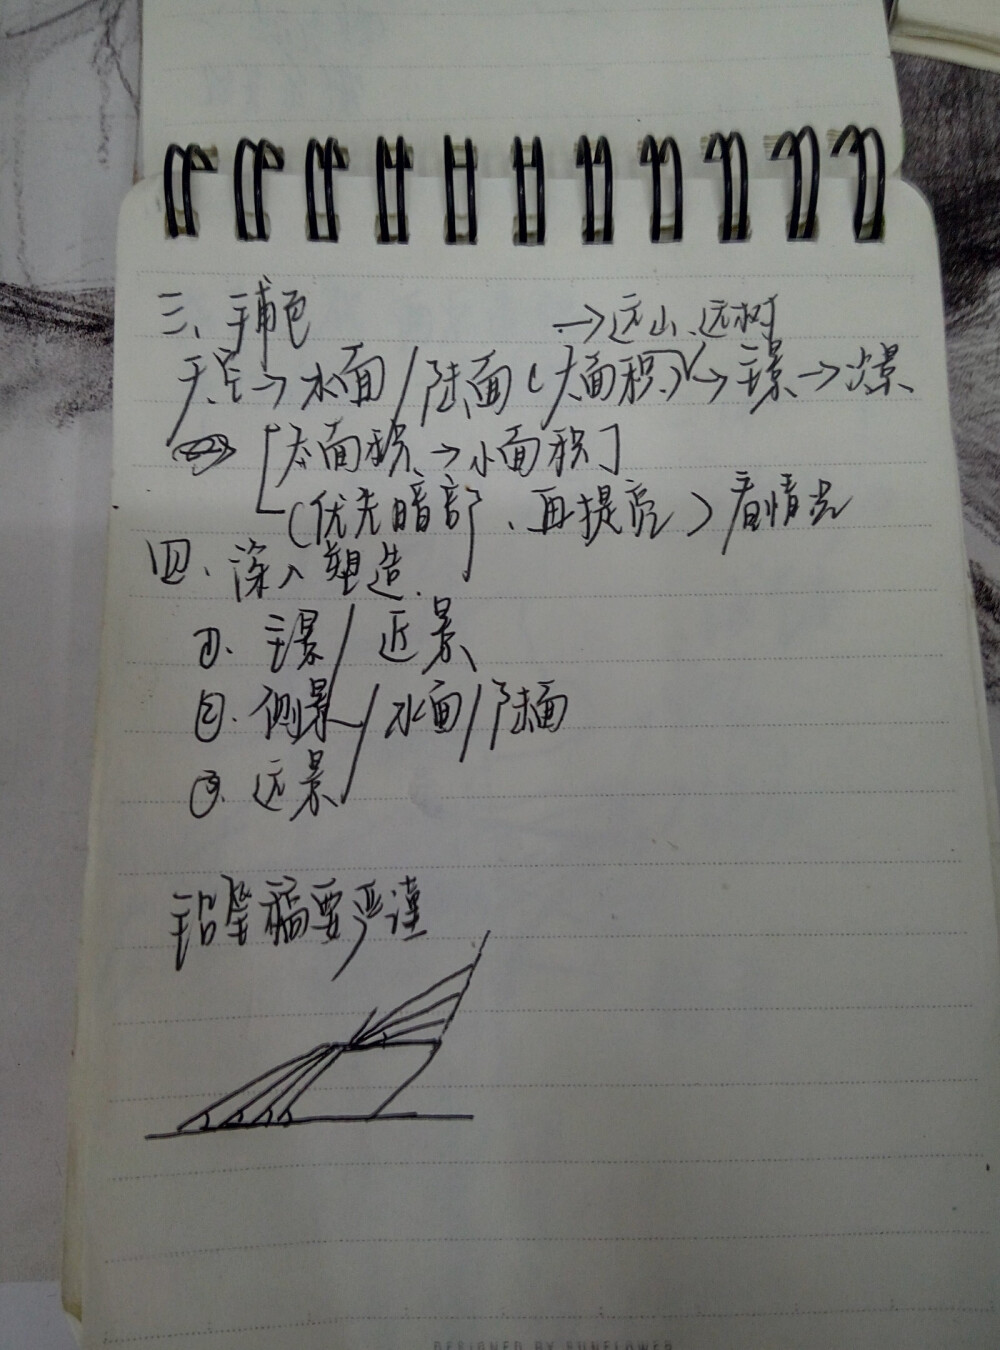 三、铺色
→远山、远树
天空→水面/陆面(大面积)→主景→次景
[大面积→小面积]
(优先暗部、再提亮)看情况
四、深入塑造.
①. 主景/近景
②. 侧景/水面/陆面
③. 远景
铅笔稿要严谨
DESIGNED BY SUNFLOWER